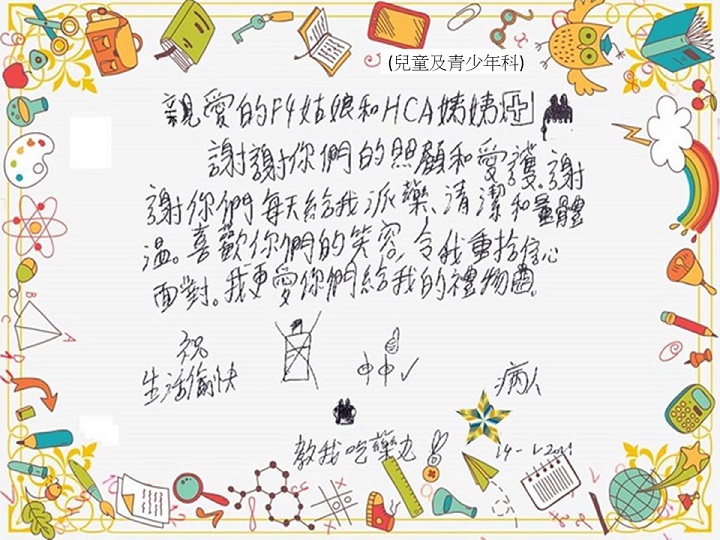 (兒童及青少年科)
親愛的F4姑娘和HCA姨姨
謝謝你們的照顧和愛護。謝
謝你們每天給我派藥、清潔和量體
溫。喜歡你們的笑容，令我重拾信心
面對。我更愛你們給我的禮物
祝
生活愉快
病人
教我吃藥丸